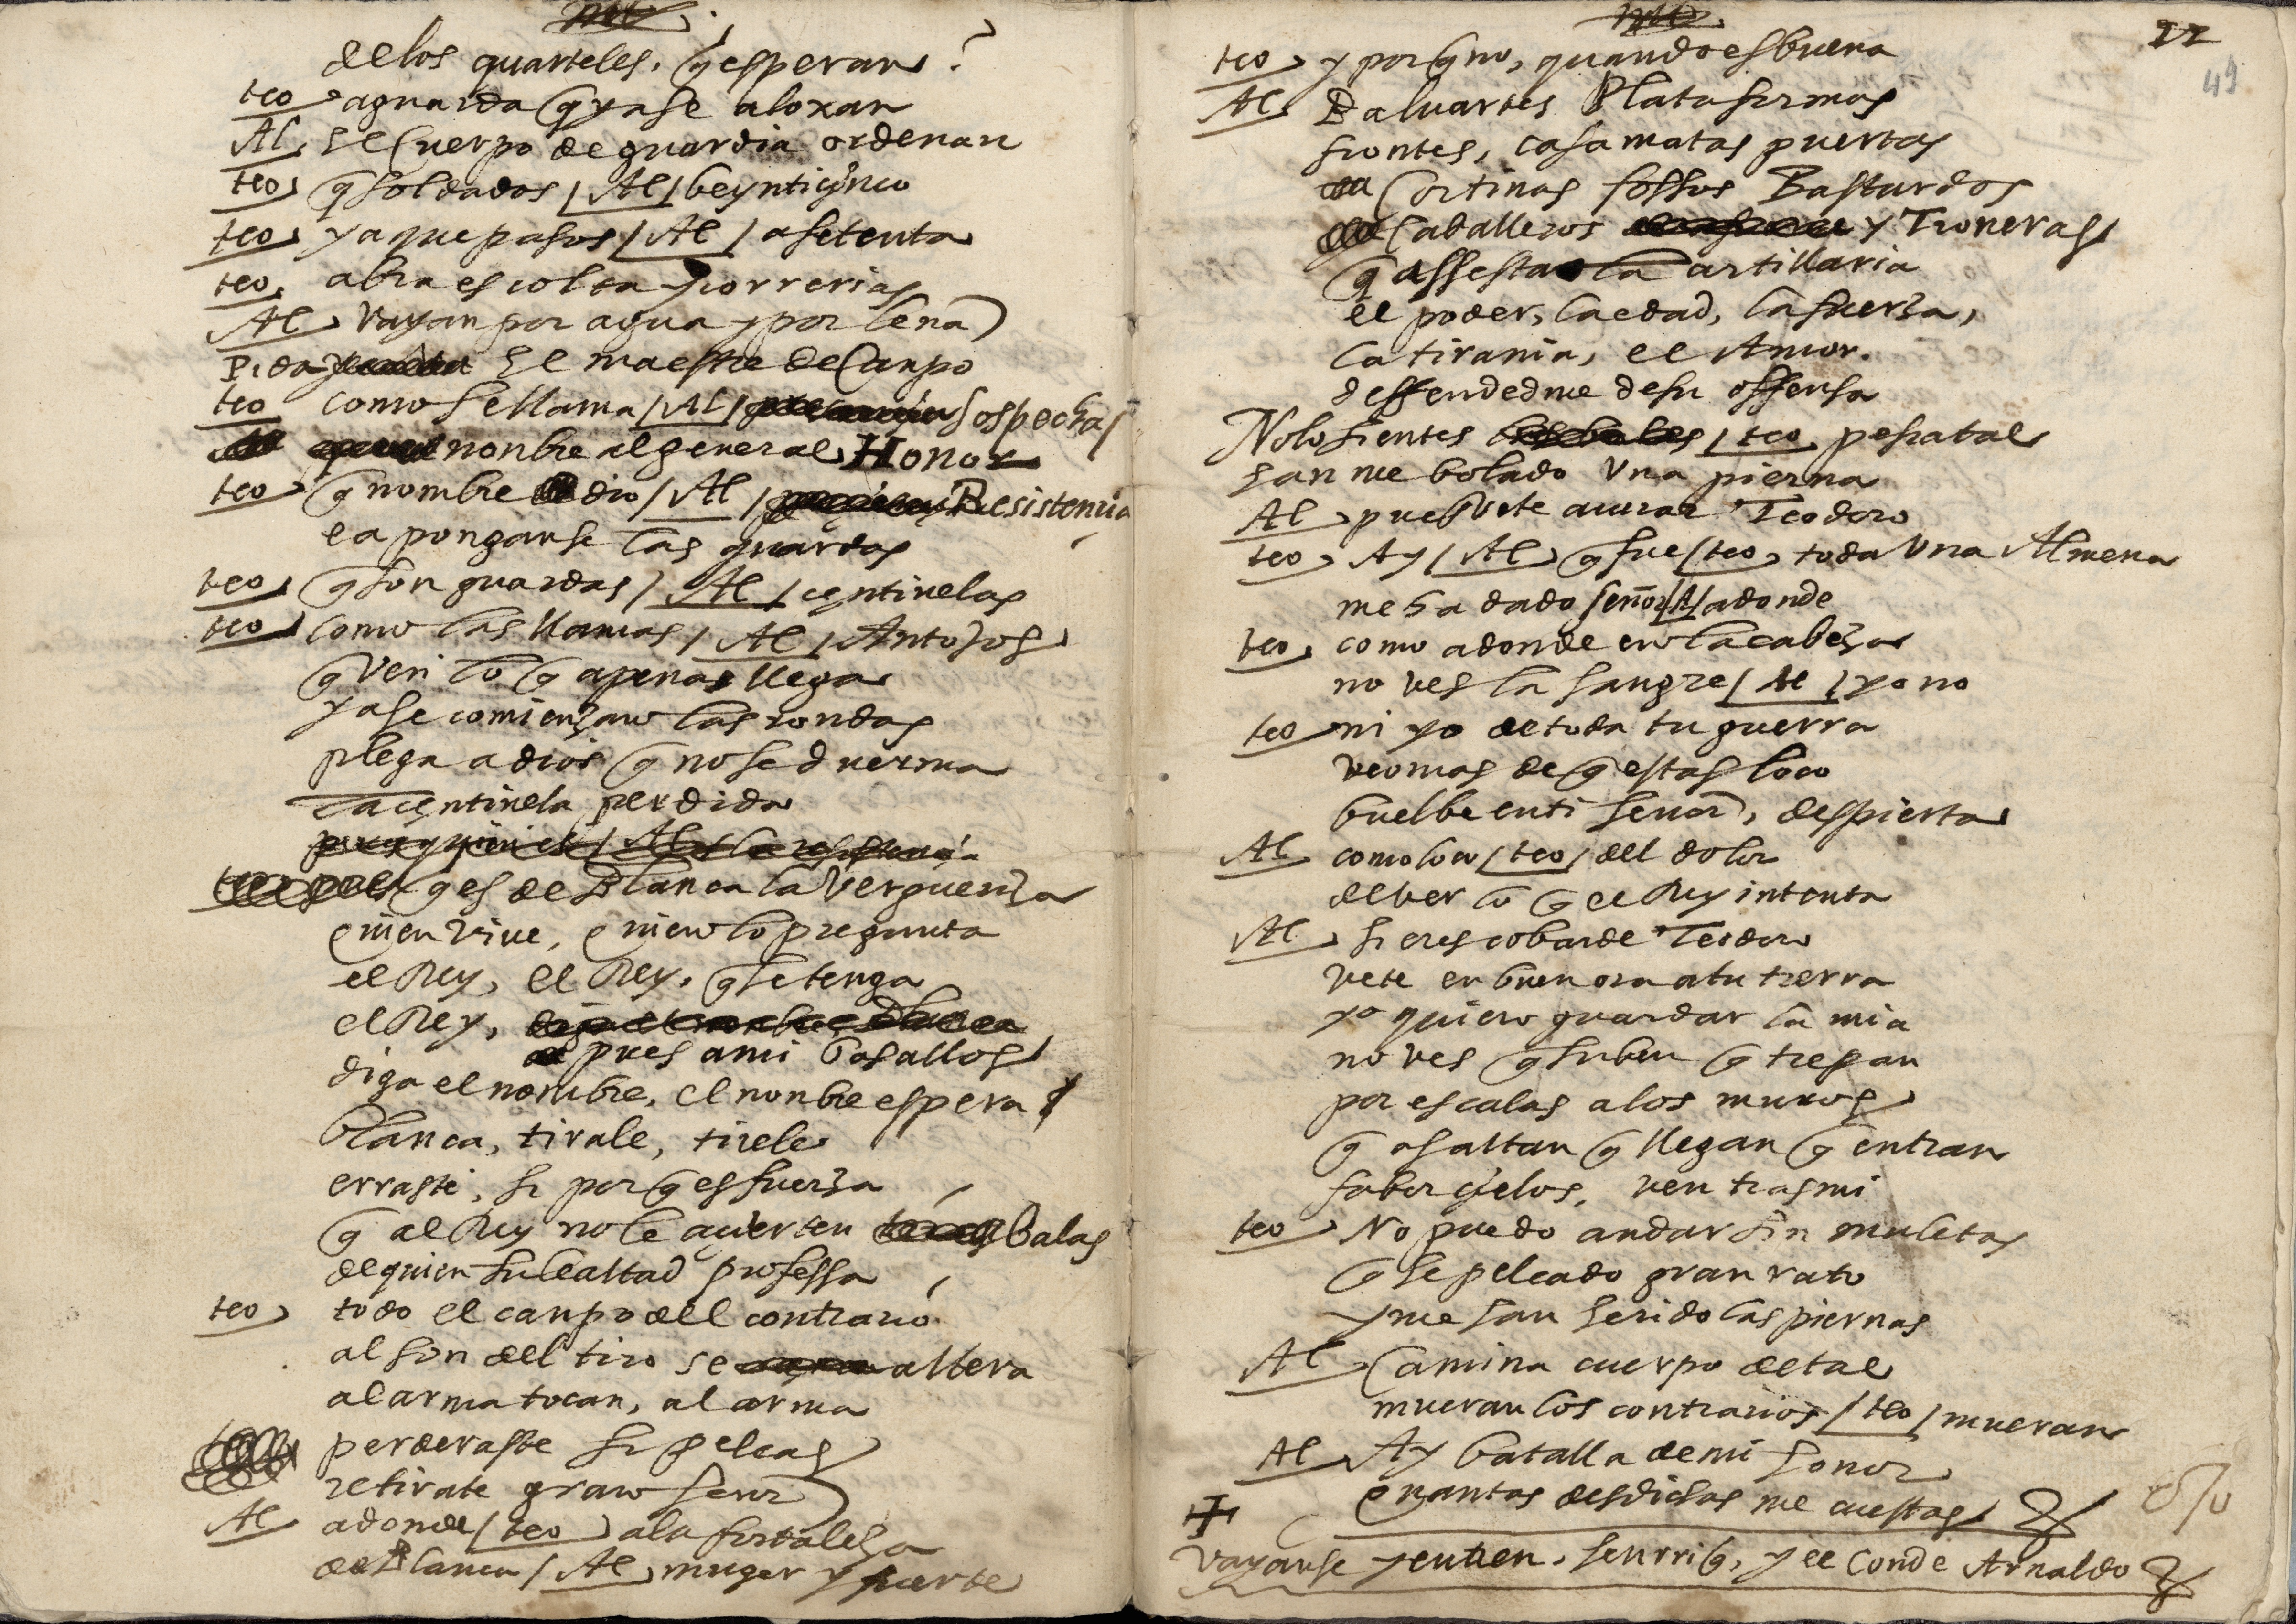 de los quarteles, q esperan?
teo aguarda q ya se aloxan
Al el Cuerpo de guardia ordenan
teo q soldados / Al / beynticynco
teo ya que pasos / Al / a setenta
teo abra escolta y correrias
Al vayan por agua y por leña
Pida el maestre de Canpo
teo como se llama / Al / sospecha
nonbre al general Honor
teo q nombre dio / Al / Resistencia
ea ponganse las guardas
teo q son guardas / Al / centinelas
teo como las llamas / Al / Antojos
q ven lo q apenas llega
ya se comienzan las rondas
plega a dios q no se duerma
la centinela perdida
q es de Blanca la verguenza
quien vive, quien lo pregunta
el Rey, el Rey, q se tenga
el Rey,
pues a mi basallos
diga el nombre, el nonbre espera
blanca, tirale, tirele
erraste, si porq es fuerza
q al Rey no le acierten balas
de quien su lealtad professa
teo todo el canpo dell contrario
al son del tiro se altera
al arma tocan, al arma
perderaste si peleas
retirate gran señor
Al adonde / teo a la fortaleza
de Blanca / Al muger y fuerte
22
49
teo y por q no, quando es buena
Al Baluartes Plataformas
frontes, casamatas puertas
Cortinas fossos Bastardos
Caballeros y Troneras
q assesta la artillaria
el poder, la edad, la fuerza,
la tirania, el Amor.
deffendedme de su offensa
No lo sientes / teo pesiatal
han me bolado una pierna
Al pues vete a curar Teodoro
teo Ay / Al q fue / teo toda una Almena
me ha dado señor / Al / adonde
teo como adonde en la cabeza
no ves la sangre / Al / yo no
teo ni yo de toda tu guerra
veo mas de q estas loco
buelbe en ti señor, despierta
Al como loco / teo / del dolor
de ver lo q el Rey intenta
Al si eres cobarde Teodoro
vete en buen ora a tu tierra
yo quiero guardar la mia
no ves q suben q trepan
por escalas a los muros
q asaltan q llegan q entran
fabor cielos, ven tras mi
teo No puedo andar sin muletas
q he peleado gran rato
y me han herido las piernas
Al Camina cuerpo de tal
mueran los contrarios / teo / mueran
Al Ay batalla de mi honor
quantas desdichas me cuestas
Vayanse y entren, henrriq, y el Conde Arnaldo